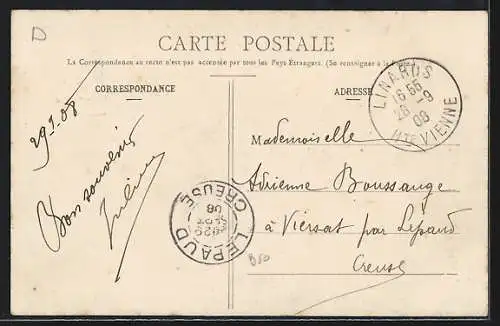 D
CARTE POSTALE
La Correspondance au recto n'est pas acceptée par tous les Pays Étrangers. (Se renseigner à la Poste)
CORRESPONDANCE
ADRESSE
LINARDS
16 55
26 -9
08
HTE VIENNE
29.9.08
Bon souvenir
Mademoiselle
Adrienne Boussange
à Viersat par Lepaud
Creuse
CREUSE
08
LEPAUD